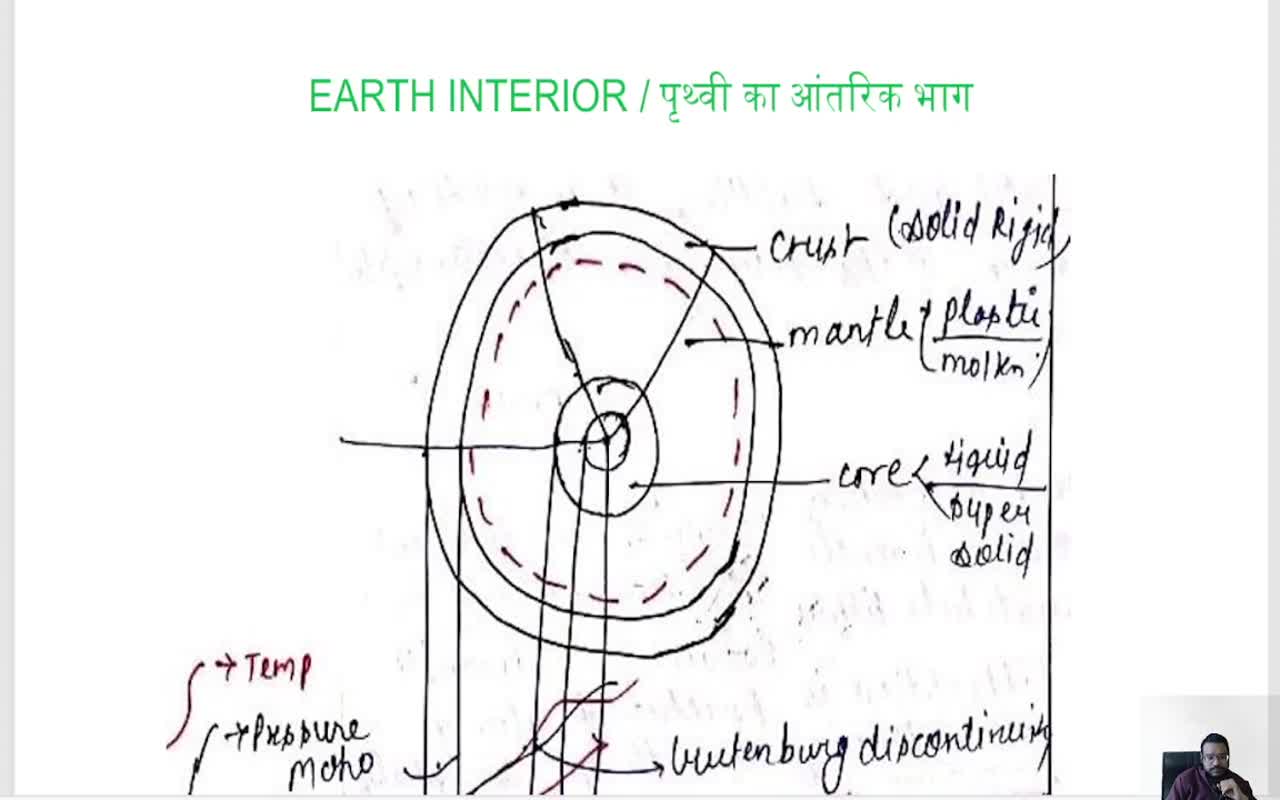 EARTH INTERIOR / पृथ्वी का आंतरिक भाग
crust (solid Rigid)
mantle (plastic
molten)
core < liquid
super
solid
→ Temp
→ Pressure
Moho
Gutenburg discontinuity